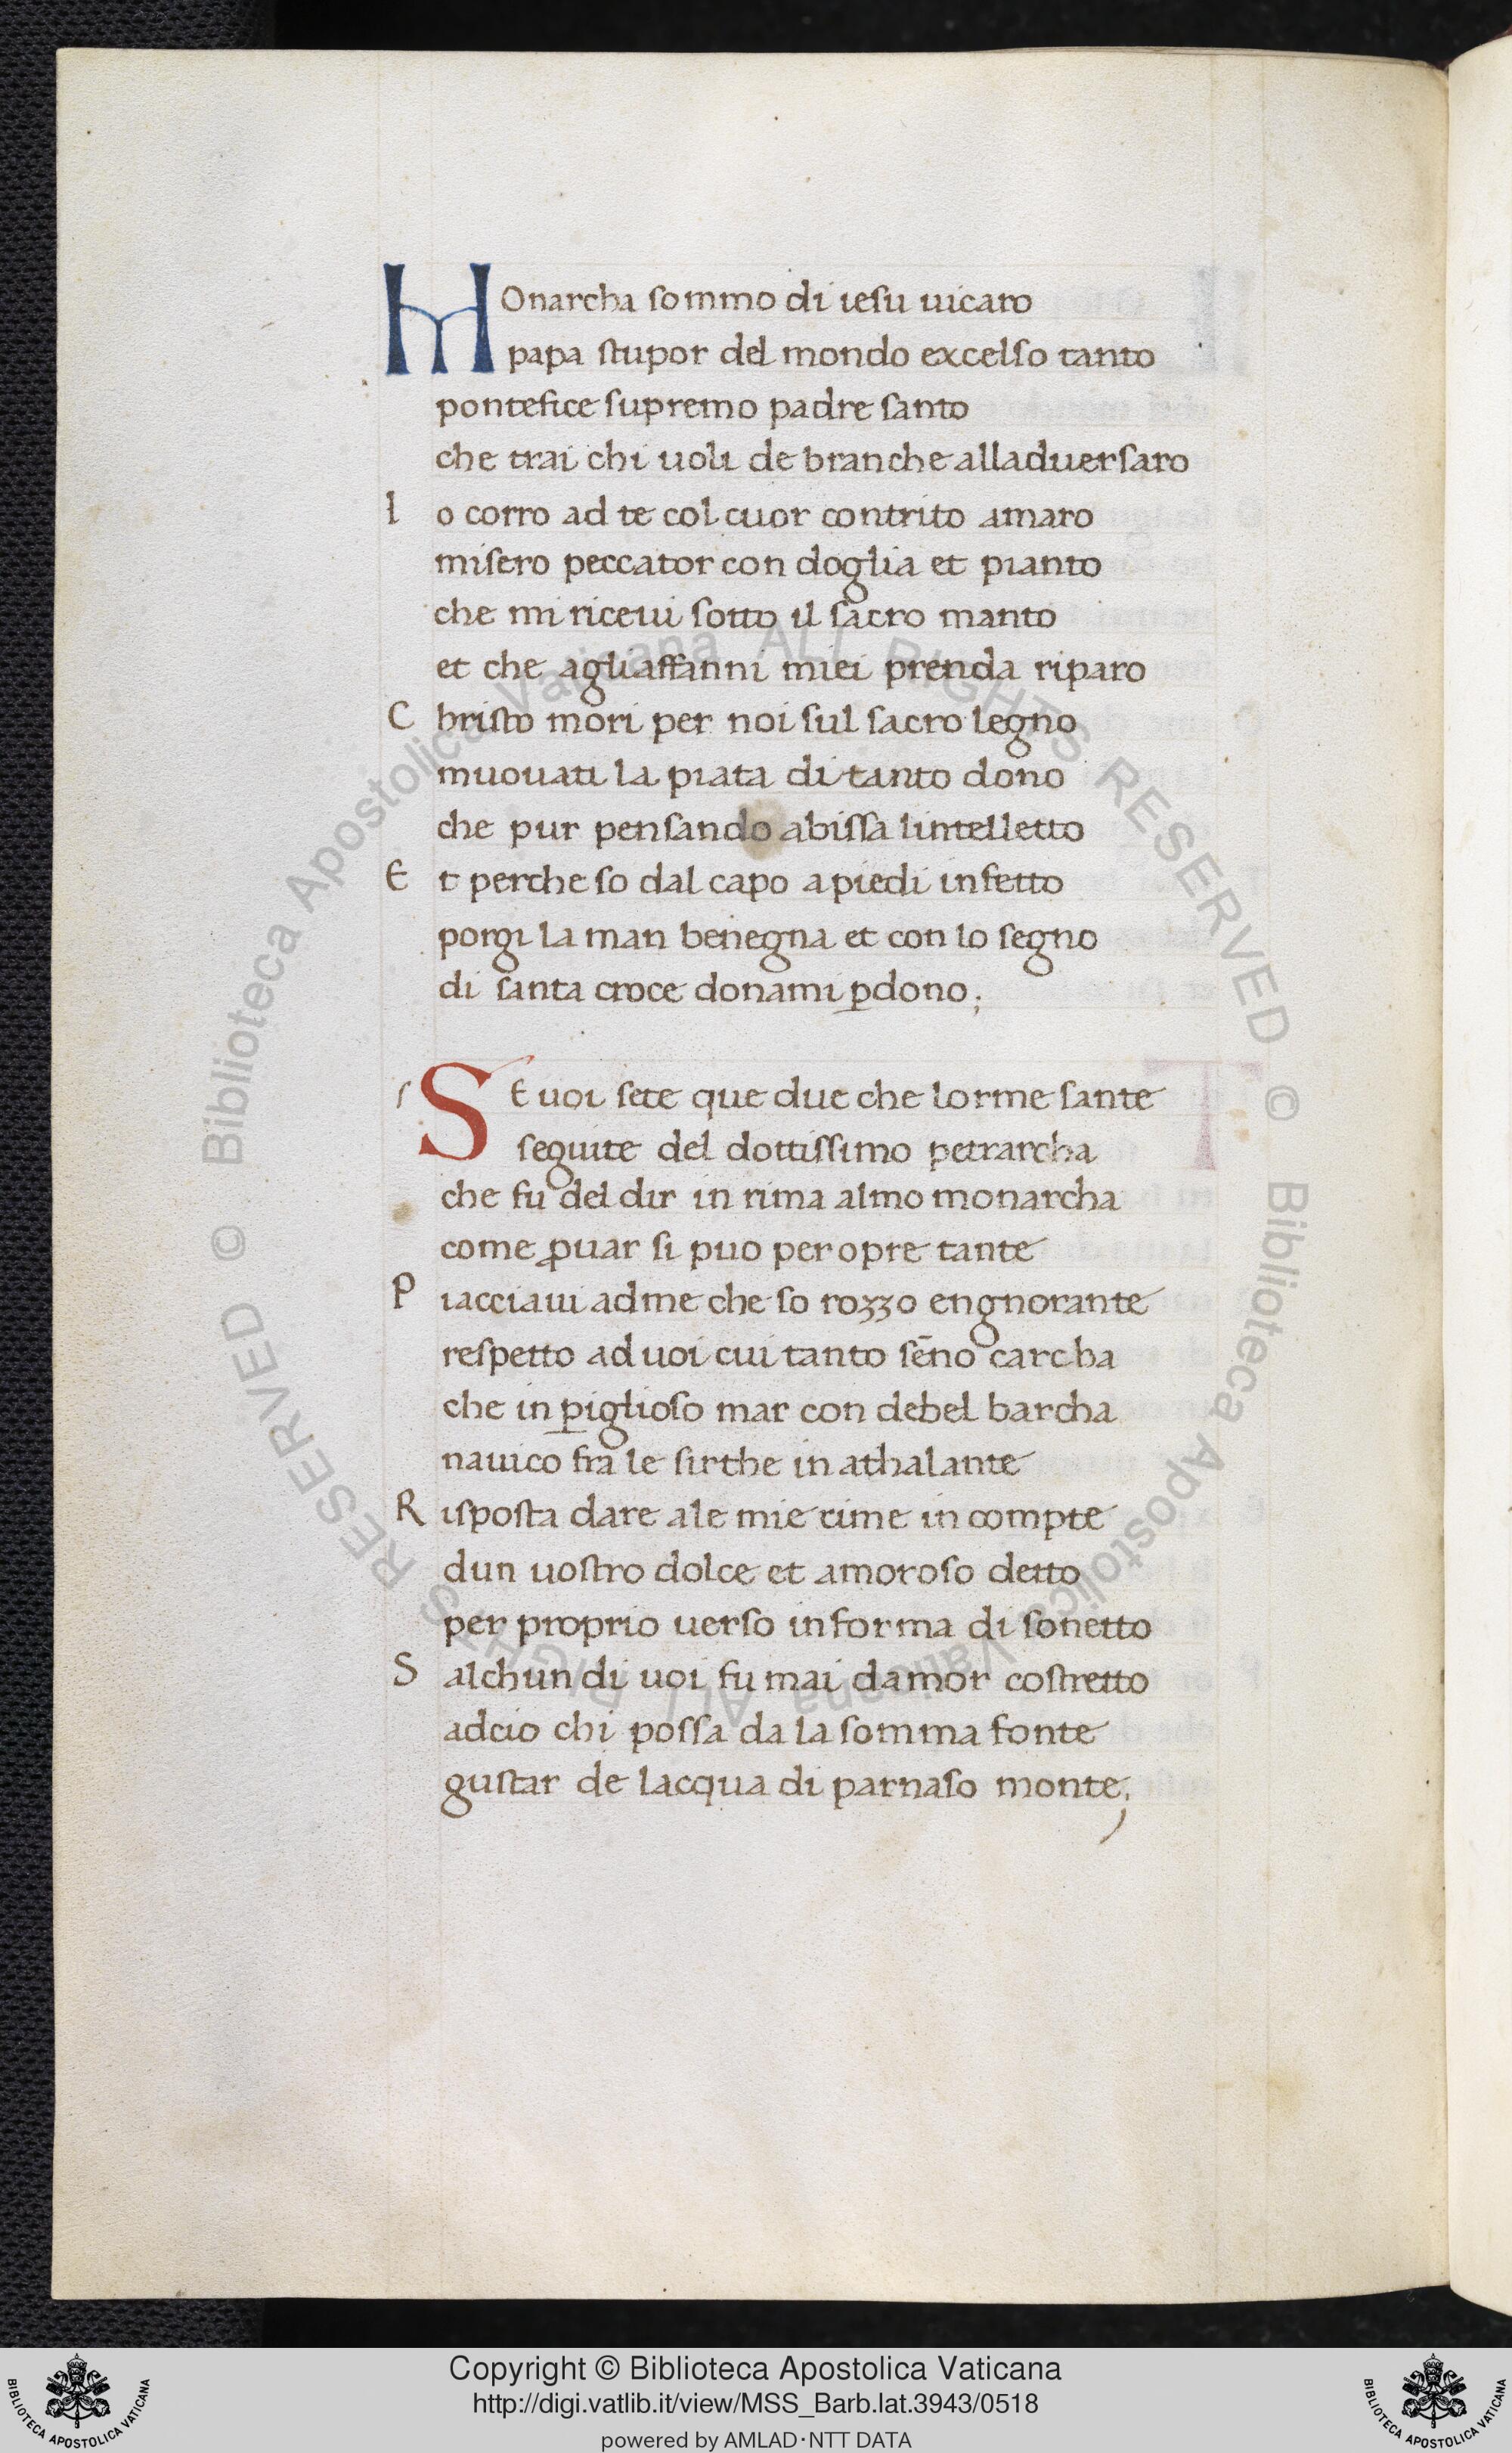 MOnarcha sommo di iesu uicaro
papa stupor del mondo excelso tanto
pontefice supremo padre santo
che trai chi uoli de branche alladuersaro
Io corro ad te col cuor contrito amaro
misero peccator con doglia et pianto
che mi riceui sotto il sacro manto
et che agliaffanni miei prenda riparo
Christo mori per noi sul sacro legno
muouati la piata di tanto dono
che pur pensando abissa lintelletto
Et perche so dal capo apiedi infetto
porgi la man benegna et con lo segno
di santa croce donami ꝑdono;
s SE uoi sete que due che lorme sante
seguite del dottissimo petrarcha
che fu del dir in rima almo monarcha
come ꝓuar si puo per opre tante
Piacciaui ad me che so rozzo engnorante
respetto ad uoi cui tanto sēno carcha
che in ꝑiglioso mar con debel barcha
nauico fra le sirthe in athalante
Risposta dare ale mie rime in compte
dun uostro dolce et amoroso detto
per proprio uerso in forma di sonetto
Salchun di uoi fu mai damor costretto
adcio chi possa da la somma fonte
gustar de lacqua di parnaso monte;
© Biblioteca Apostolica Vaticana ALL RIGHTS RESERVED
© Biblioteca Apostolica Vaticana ALL RIGHTS RESERVED
Copyright © Biblioteca Apostolica Vaticana
http://digi.vatlib.it/view/MSS_Barb.lat.3943/0518
powered by AMLAD·NTT DATA
BIBLIOTECA APOSTOLICA VATICANA
BIBLIOTECA APOSTOLICA VATICANA